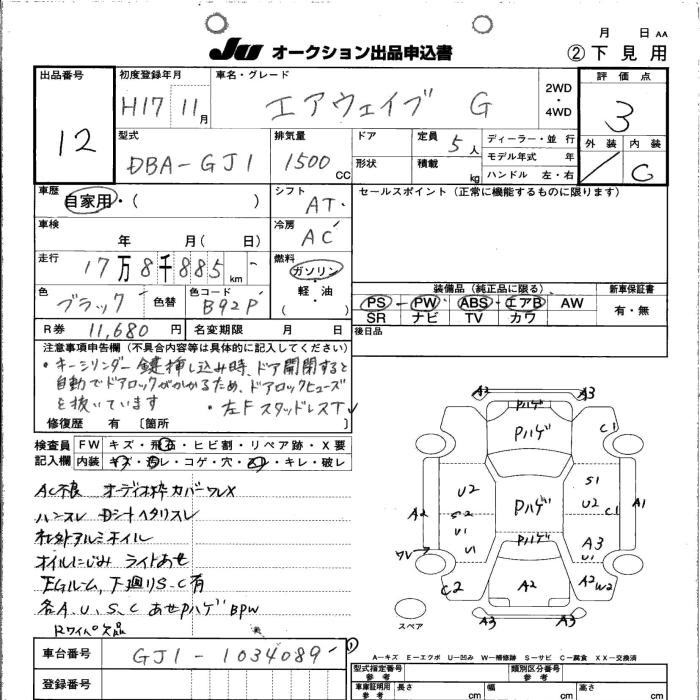 月 日 AA
JU オークション出品申込書 ②下見用
出品番号 初度登録年月 車名・グレード 2WD・4WD 評価点
12 H17 11月 エアウェイブ G 3
型式 排気量 ドア 定員 5人 ディーラー・並 行 外装 内装
DBA-GJ1 1500CC 形状 積載 kg モデル年式 年 C
ハンドル 左・右
車歴 自家用・( ) シフト AT セールスポイント(正常に機能するものに限ります)
車検 年 月( 日) 冷房 AC
走行 17万8千885km 燃料 ガソリン・軽・油 ( )
装備品(純正品に限る) 新車保証書
色 ブラック 色替 色コード B92P
PS PW ABS エアB AW 有・無
SR ナビ TV カワ
R券 11,680円 名変期限 月 日 後日品
注意事項申告欄(不具合内容等は具体的に記入してください)
・キーシリンダー鍵挿し込み時、ドア開閉すると
自動でドアロックがかかるため、ドアロックヒューズ
を抜いています ・左FスタッドレスT
修復歴 有 〔箇所 〕
検査員記入欄 FW キズ・飛石・ヒビ割・リペア跡・X要
内装 キズ・汚レ・コゲ・穴・スレ・キレ・破レ
AC不良 オーディオ枠カバーワレX
ハンスレ Dシートヘタリスレ
社外アルミホイル
オイルにじみ ライトあせ
EGルーム、下廻りS、C有
各A、U、S、C あせPハゲBPW
Rワイパー欠品
A2 A3
Pハゲ
Pハゲ C1
U2 S1
A2 S2 Pハゲ U2 C1 A1
U1
U1 Pハゲ A3
ワレ U1
C2 A2 A2 W2
A3 A3
スペア
A-キズ E-エクボ U-凹み W-補修跡 S-サビ C-腐食 XX-交換済
車台番号 GJ1-1034089
型式指定番号 参考 類別区分番号 参考
登録番号
車庫証明用 参考 長さ cm 幅 cm 高さ cm